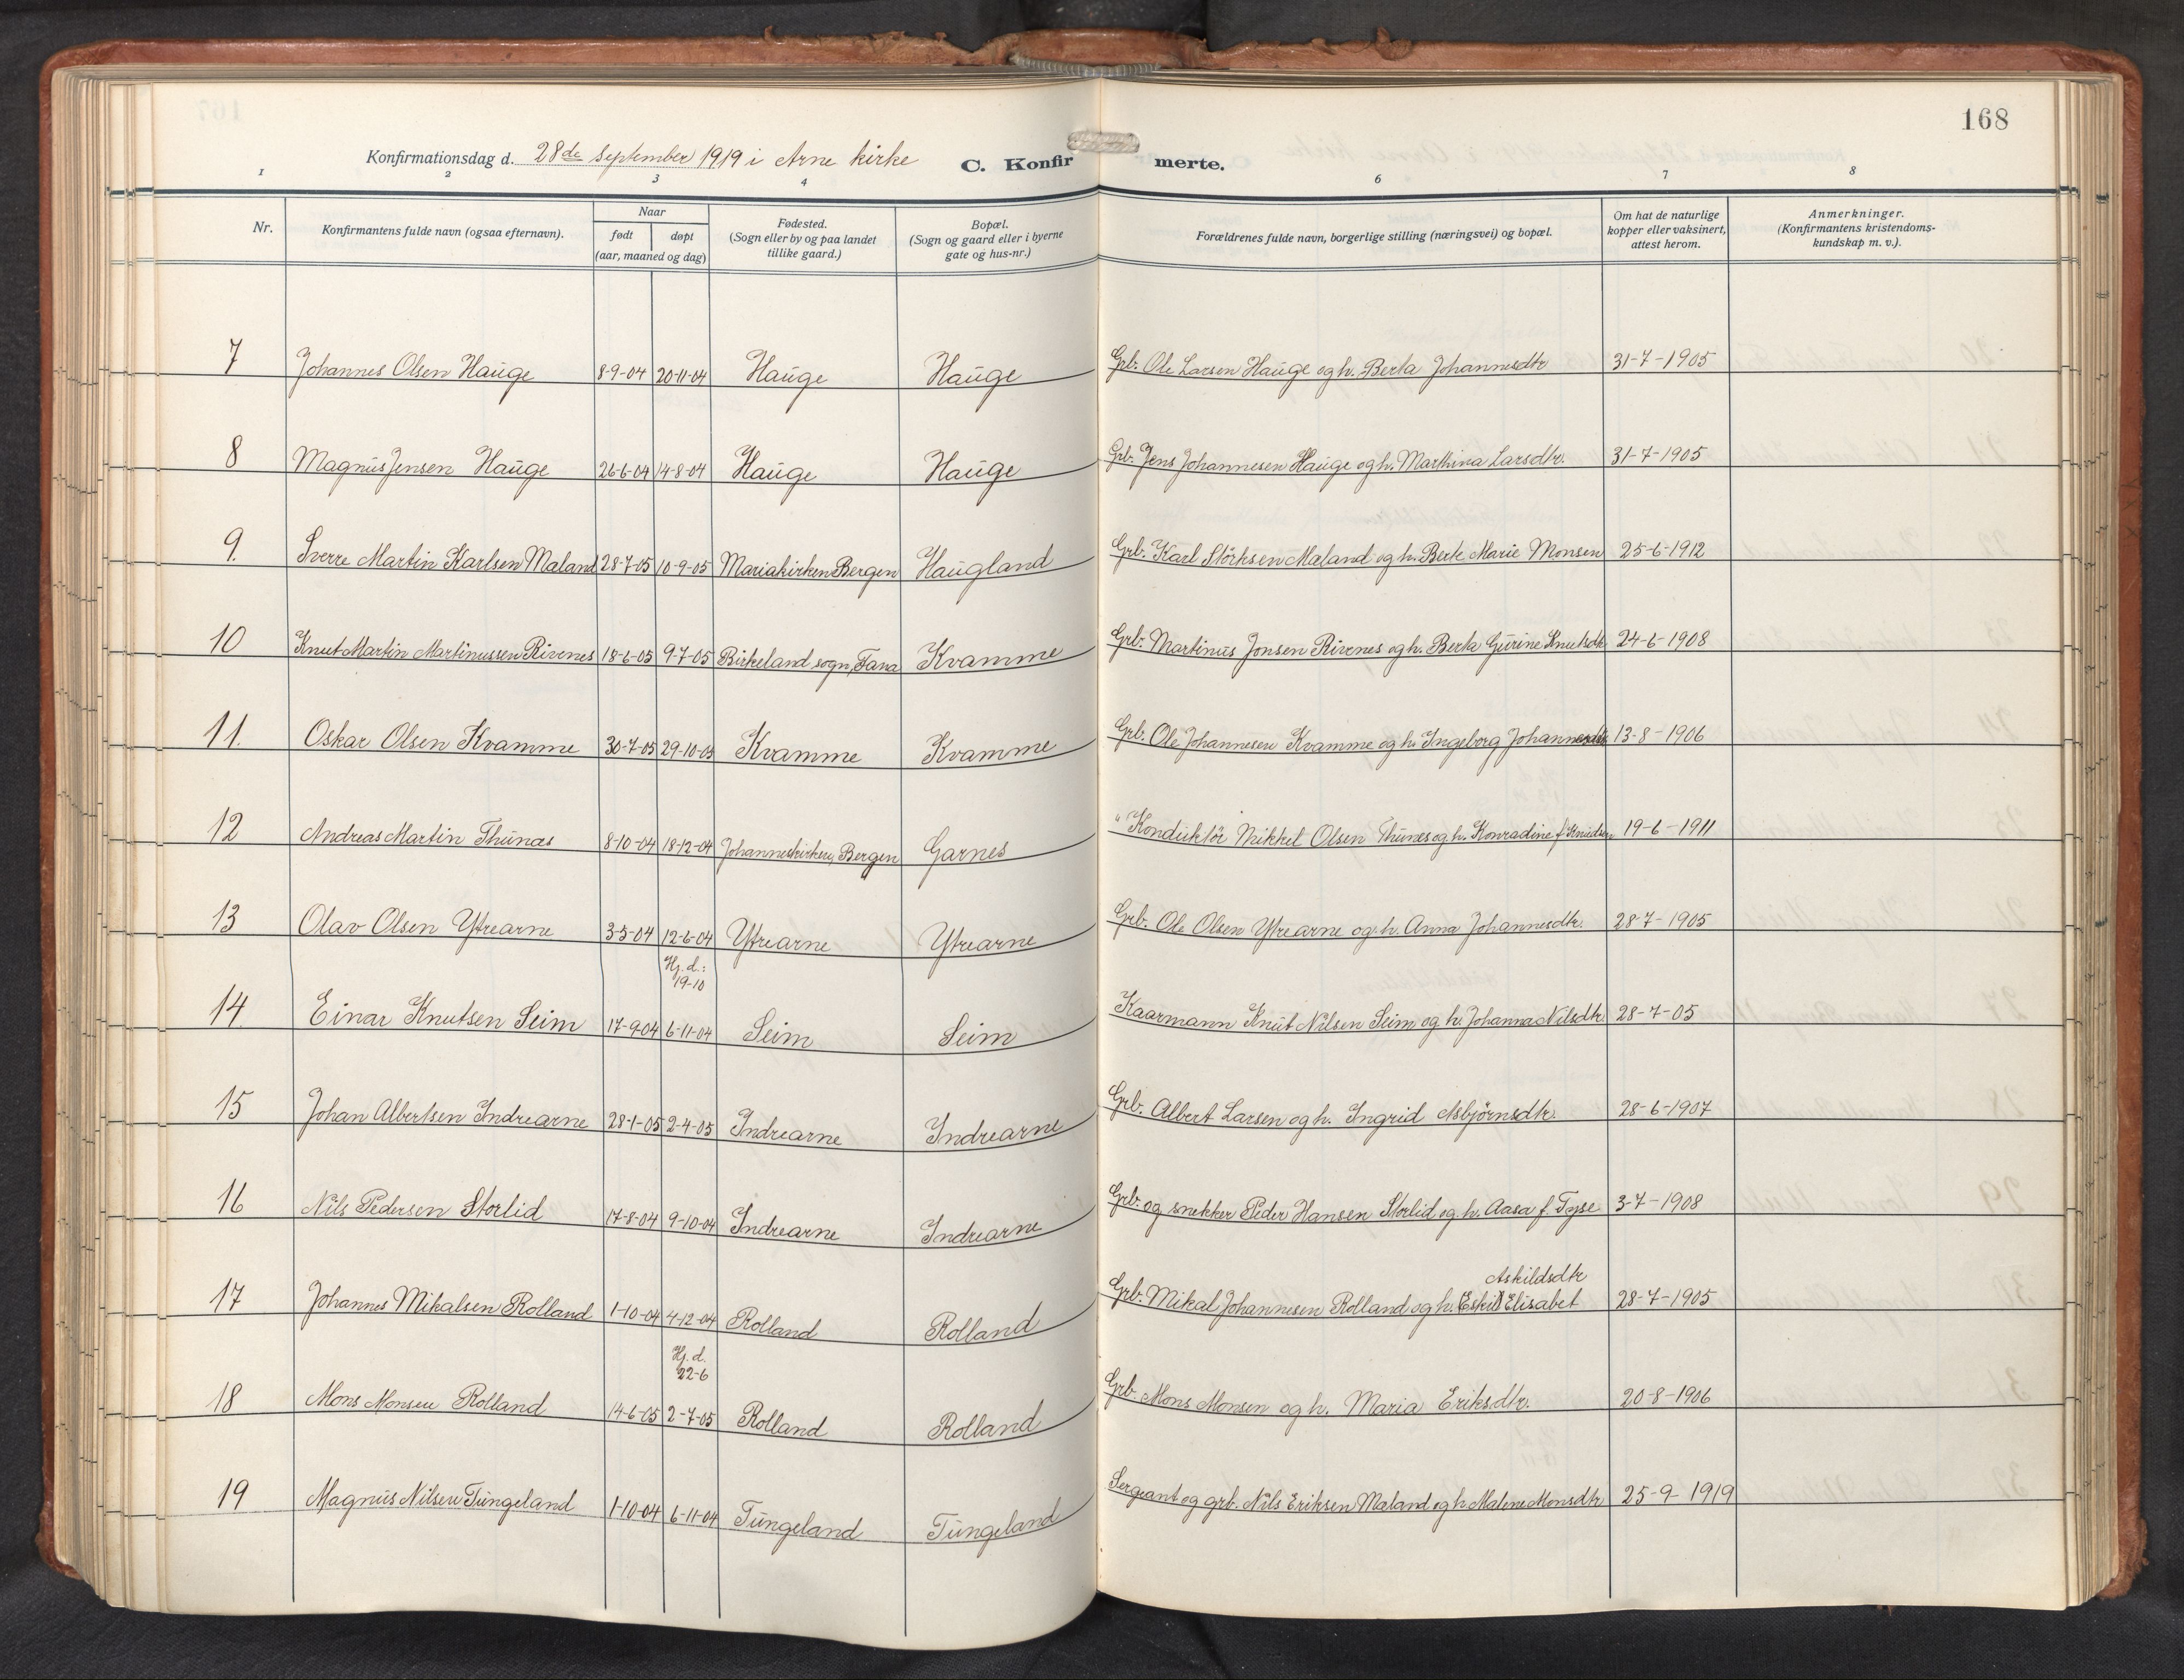 168
Konfirmationsdag d. 28de september 1919 i Arne kirke
C. Konfirmerte.
1 2 3 4 6 7 8
Nr.
Konfirmantens fulde navn (ogsaa efternavn).
Naar
født døpt
(aar, maaned og dag)
Fødested.
(Sogn eller by og paa landet
tillike gaard.)
Bopæl.
(Sogn og gaard eller i byerne
gate og hus-nr.)
Forældrenes fulde navn, borgerlige stilling (næringsvei) og bopæl.
Om hat de naturlige
kopper eller vaksinert,
attest herom.
Anmerkninger.
(Konfirmantens kristendoms-
kundskap m. v.).
7 Johannes Olsen Hauge 8-9-04 20-11-04 Hauge Hauge Grb. Ole Larsen Hauge og h. Berta Johannesdtr 31-7-1905
8 Magnus Jensen Hauge 26-6-04 14-8-04 Hauge Hauge Grb. Jens Johannesen Hauge og h. Marthina Larsdtr. 31-7-1905
9. Sverre Martin Karlsen Maland 28-7-05 10-9-05 Mariakirken Bergen Haugland Grb. Karl Störksen Maland og h. Berte Marie Monsen 25-6-1912
10 Knut Martin Martinussen Rivenes 18-6-05 9-7-05 Birkeland sogn, Fana Kvamme Grb. Martinus Jonsen Rivenes og h. Berta Gurine Knutsdtr 24-6-1908
11. Oskar Olsen Kvamme 30-7-05 29-10-05 Kvamme Kvamme Grb. Ole Johannesen Kvamme og h. Ingeborg Johannesdtr 13-8-1906
12 Andreas Martin Thunæs 8-10-04 18-12-04 Johanneskirken, Bergen Garnes " Konduktör Mikkel Olsen Thunes og h. Konradine f. Knudsen 19-6-1911
13 Olav Olsen Ytrearne 3-5-04 12-6-04 Ytrearne Ytrearne Grb. Ole Olsen Ytrearne og h. Anna Johannesdtr. 28-7-1905
Hj. d.:
19-10
14. Einar Knutsen Seim 17-9-04 6-11-04 Seim Seim Kaarmann Knut Nilsen Seim og h. Johanna Nilsdtr. 28-7-05
15 Johan Albertsen Indrearne 28-1-05 2-4-05 Indrearne Indrearne Grb. Albert Larsen og h. Ingrid Asbjörnsdtr. 28-6-1907
16 Nils Pedersen Storlid 17-8-04 9-10-04 Indrearne Indrearne Grb. og snekker Peder Hansen Storlid og h. Aasa f. Tyse 3-7-1908
Askildsdtr
17 Johannes Mikalsen Rolland 1-10-04 4-12-04 Rolland Rolland Grb. Mikal Johannesen Rolland og h. Eskil Elisabet 28-7-1905
Hj. d.
22-6
18 Mons Monsen Rolland 14-6-05 2-7-05 Rolland Rolland Grb. Mons Monsen og h. Maria Eriksdtr. 20-8-1906
19 Magnus Nilsen Tungeland 1-10-04 6-11-04 Tungeland Tungeland Sergeant og grb. Nils Eriksen Maland og h. Malene Monsdtr 25-9-1919